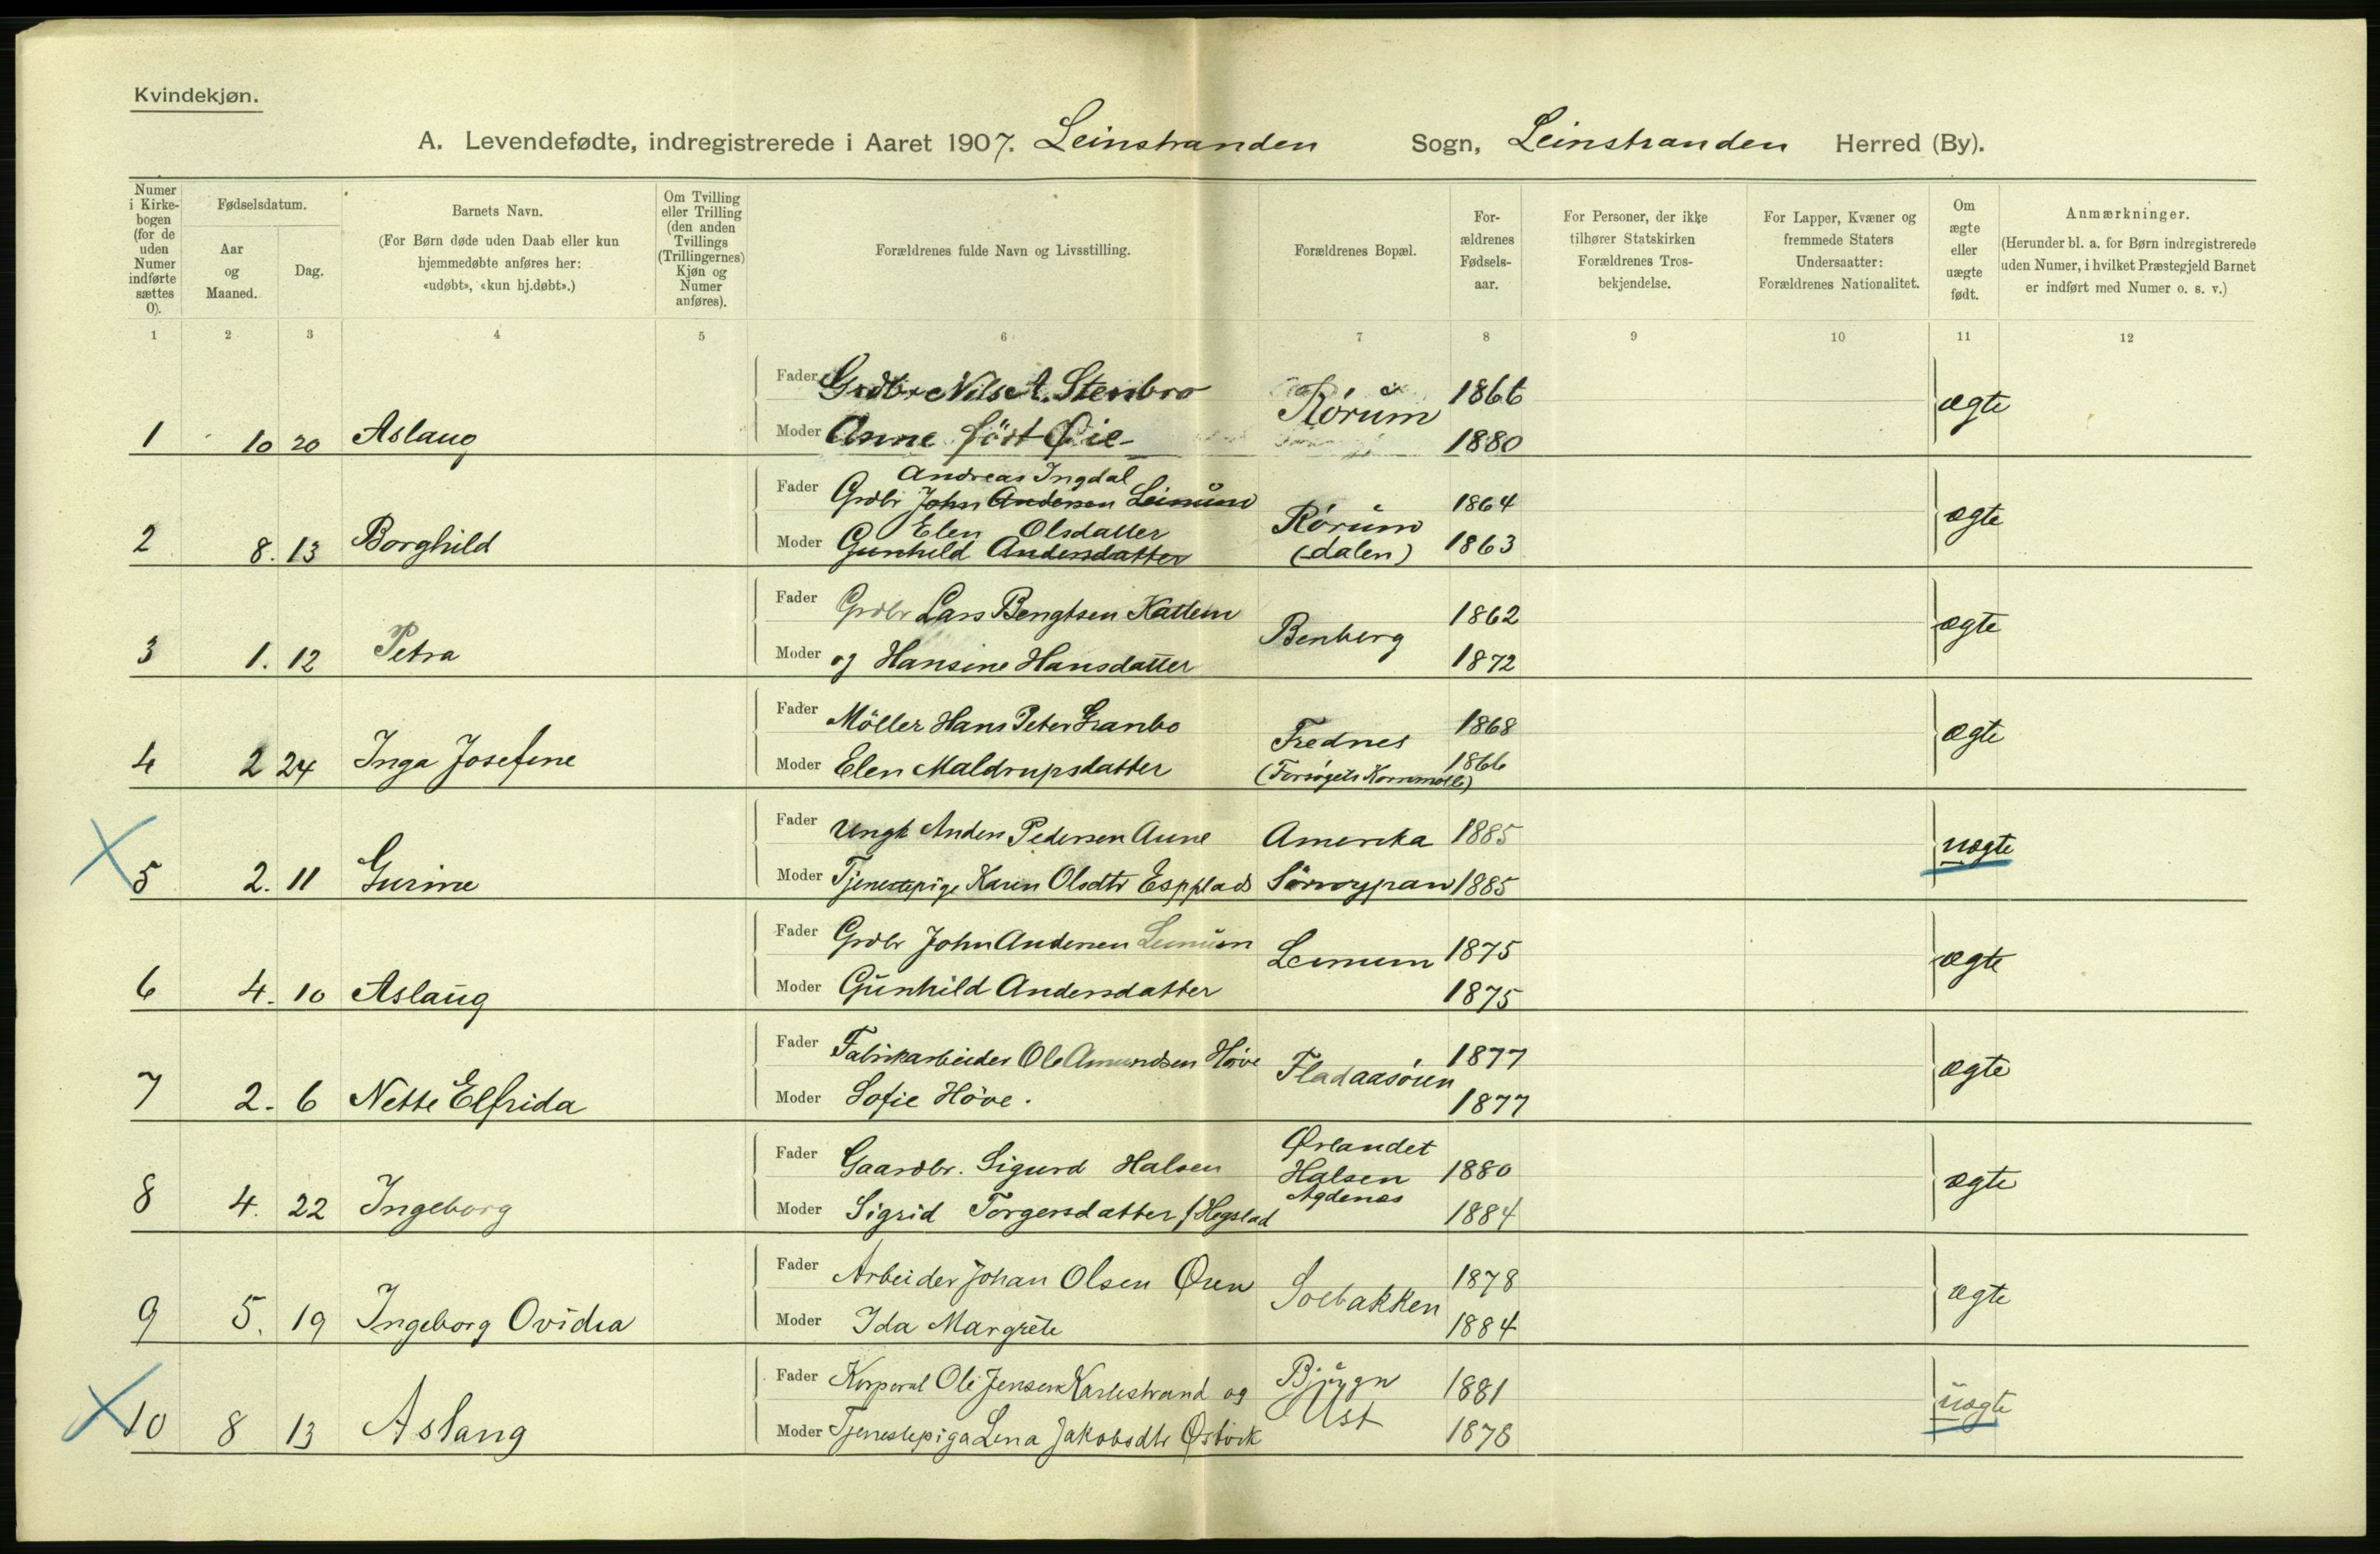 Kvindekjøn.
A. Levendefødte, indregistrerede i Aaret 1907. Leinstranden Sogn, Leinstranden Herred (By).
Numer i Kirkebogen (for de uden Numer indførte sættes 0).
Fødselsdatum.
Aar og Maaned.
Dag.
Barnets Navn.
(For Børn døde uden Daab eller kun hjemmedøbte anføres her: «udøbt», «kun hj.døbt».)
Om Tvilling eller Trilling (den anden Tvillings (Trillingernes) Kjøn og Numer anføres).
Forældrenes fulde Navn og Livsstilling.
Forældrenes Bopæl.
Forældrenes Fødselsaar.
For Personer, der ikke tilhører Statskirken Forældrenes Trosbekjendelse.
For Lapper, Kvæner og fremmede Staters Undersaatter: Forældrenes Nationalitet.
Om ægte eller uægte født.
Anmærkninger.
(Herunder bl. a. for Børn indregistrerede uden Numer, i hvilket Præstegjeld Barnet er indført med Numer o. s. v.)
1 2 3 4 5 6 7 8 9 10 11 12
Fader Grdbr Nils A. Stenbro Rørum 1866 ægte
1 10 20 Aslaug Moder Anne født Øie 1880
Andreas Ingdal
Fader Grdbr John Andersen Leinum Rørum 1864 ægte
Elen Olsdatter
2 8. 13 Borghild Moder Gunhild Andersdatter (dalen) 1863
Fader Grdbr Lars Bengtsen Kattem Benberg 1862 ægte
3 1. 12 Petra Moder og Hansine Hansdatter 1872
Fader Möller Hans Peter Granbo Frednes 1868 ægte
4 2 24 Inga Josefine Moder Elen Maldrupsdatter 1866
Fader Ungk Anders Pedersen Aune Amerika 1885 uægte
5 2. 11 Gurine Moder Tjenestepige Karen Olsdtr 1885
Fader Grdbr John Andersen Leinum Leinum 1875 ægte
6 4. 10 Aslaug Moder Gunhild Andersdatter 1875
Fader Fabrikarbeider Ole Amundsen Höve Fladaasøien 1877 ægte
7 2. 6 Nette Elfrida Moder Sofie Höve. 1877
Ørlandet
Fader Gaardbr. Sigurd Halsen Halsen 1880 ægte
Agdenes
8 4. 22 Ingeborg Moder Sigrid Torgersdatter f Hegstad 1884
Fader Arbeider Johan Olsen Øien Solbakken 1878 ægte
9 5. 19 Ingeborg Ovidia Moder Ida Margrete 1884
Fader Korporal Ole Jensen Karlestrand og Bjugn 1881 uægte
10 8 13 Aslaug Moder Tjenestepiga Lena Jakobsdtr Østvik Ust 1878